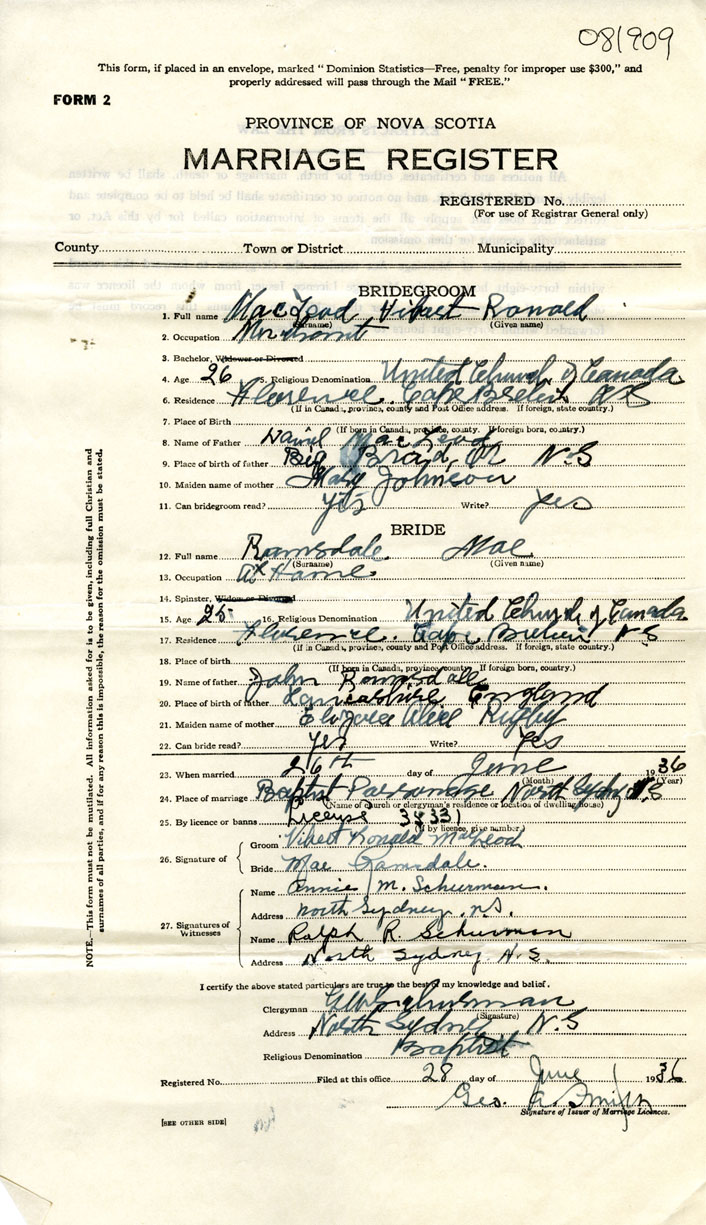 081909
This form, if placed in an envelope, marked "Dominion Statistics—Free, penalty for improper use $300," and
properly addressed will pass through the Mail "FREE."
FORM 2
PROVINCE OF NOVA SCOTIA
MARRIAGE REGISTER
REGISTERED No.
(For use of Registrar General only)
County Town or District Municipality
BRIDEGROOM
1. Full name MacLeod Ronald
(Surname) (Given name)
2. Occupation
3. Bachelor, Widower or Divorced
4. Age 26 5. Religious Denomination United Church of Canada
6. Residence Florence Cape Breton NS
(If in Canada, province, county and Post Office address. If foreign, state country.)
7. Place of Birth
(If born in Canada, province, county. If foreign born, country.)
8. Name of Father MacLeod
9. Place of birth of father Big N.S
10. Maiden name of mother Mary Johnson
11. Can bridegroom read? yes Write? yes
BRIDE
12. Full name Ramsdale Mae
(Surname) (Given name)
13. Occupation at Home
14. Spinster, Widow or Divorced
15. Age 25 16. Religious Denomination United Church of Canada
17. Residence Florence Cape Breton NS
(If in Canada, province, county and Post Office address. If foreign, state country.)
18. Place of birth
(If born in Canada, province, county. If foreign born, country.)
19. Name of father John Ramsdale
20. Place of birth of father Lancashire England
21. Maiden name of mother Rigby
22. Can bride read? yes Write? yes
23. When married 26th day of June 1936
(Month) (Year)
24. Place of marriage Baptist Parsonage North Sydney N.S
(Name of church or clergyman's residence or location of dwelling house)
25. By licence or banns License
(If by licence, give number)
26. Signature of
Groom Vibert Ronald MacLeod
Bride Mae Ramsdale.
27. Signatures of Witnesses
Name Annie M. Schurman.
Address North Sydney, N.S.
Name Ralph R. Schurman
Address North Sydney. N.S.
I certify the above stated particulars are true to the best of my knowledge and belief.
Clergyman Schurman
(Signature)
Address North Sydney N.S
Religious Denomination Baptist
Registered No. Filed at this office 28 day of June 1936
Geo. A Smith
Signature of Issuer of Marriage Licences.
[SEE OTHER SIDE]
NOTE.—This form must not be mutilated. All information asked for is to be given, including full Christian and
surnames of all parties, and if for any reason this is impossible, the reason for the omission must be stated.